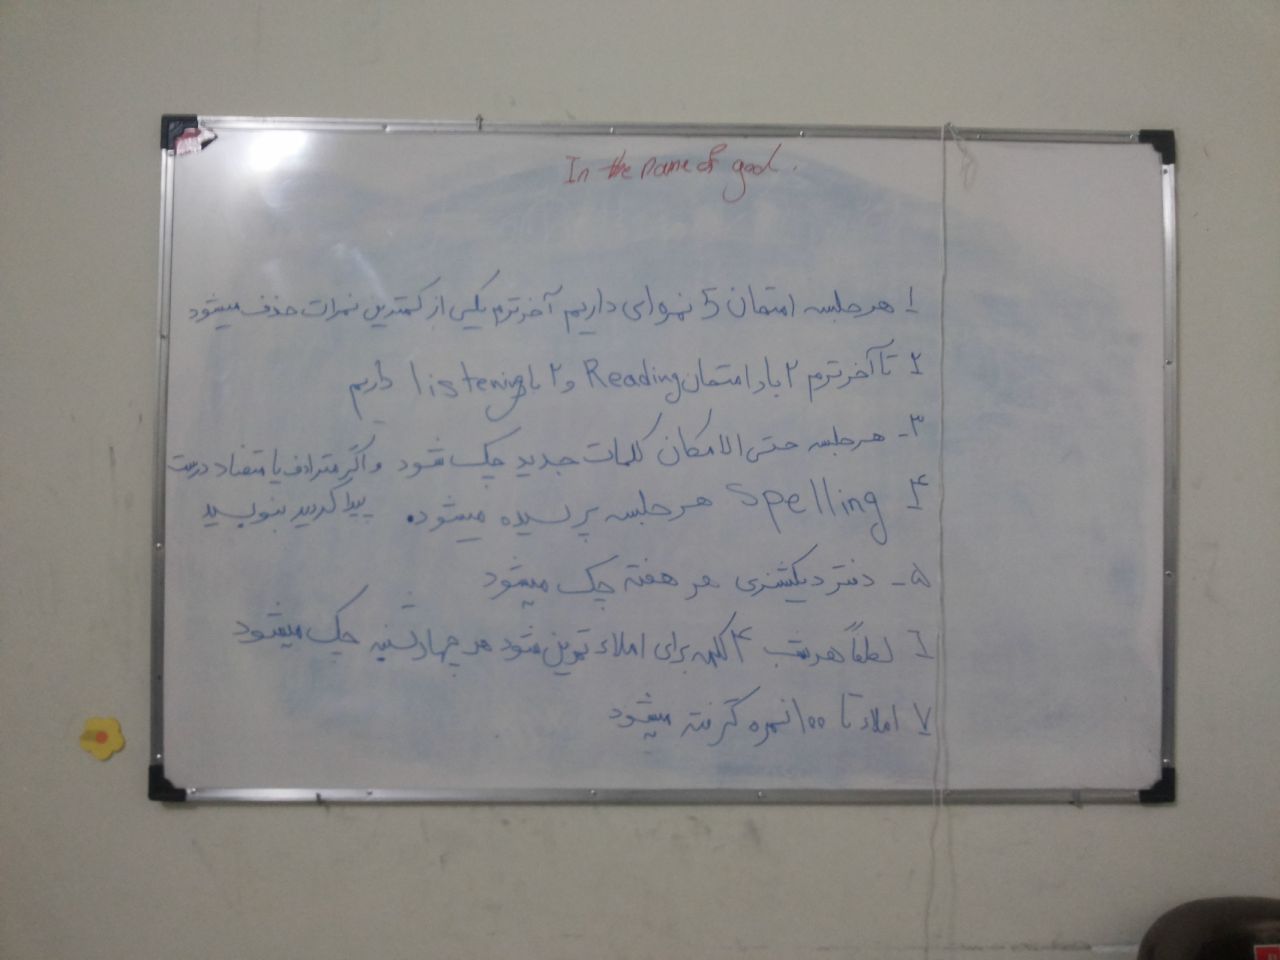 In the name of god.
۱ هر جلسه امتحان 5 نمره‌ای داریم آخر ترم یکی از کمترین نمرات حذف میشود
۲ تا آخر ترم ۲ بار امتحان Reading و ۲ بار listening داریم
۳- هر جلسه حتی الامکان کلمات جدید چک شود و اگر مترادف یا متضاد درست
پیدا کردید بنویسید
۴ Spelling هر جلسه پرسیده میشود.
۵- دفتر دیکشنری هر هفته چک میشود
۶ لطفاً هر شب ۴ کلمه برای املاء تمرین شود هر چهارشنبه چک میشود
۷ املاء تا ۱۰۰ نمره گرفته میشود